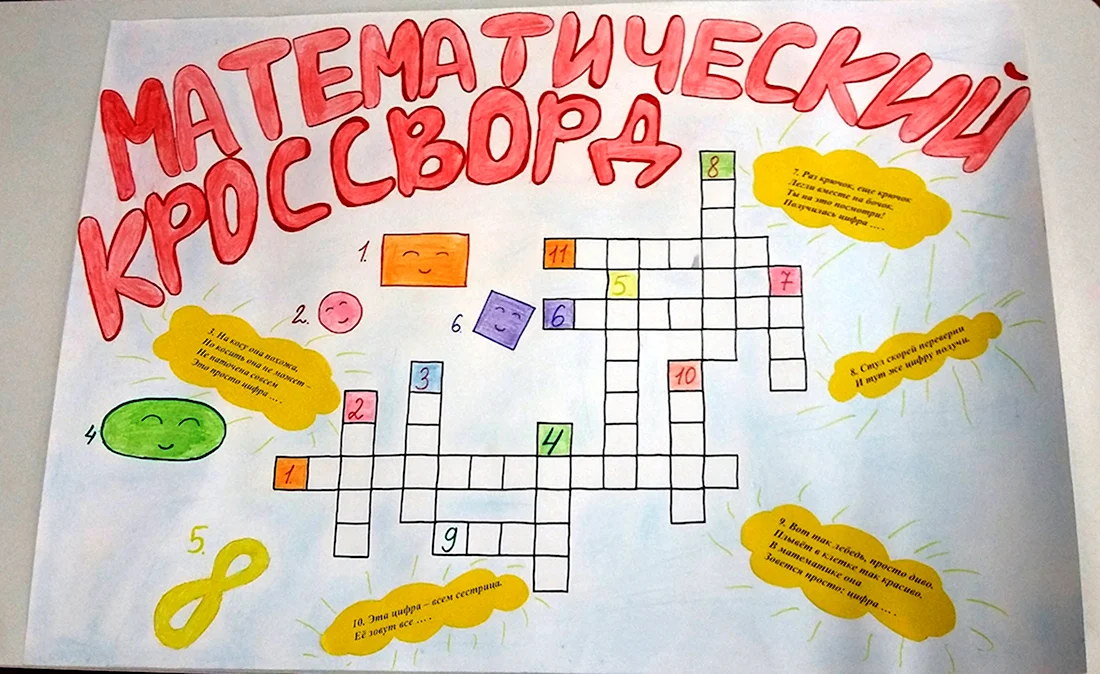 МАТЕМАТИЧЕСКИЙ
КРОССВОРД
8
7. Раз крючок, еще крючок
Легли вместе на бочок.
Ты на это посмотри!
Получилась цифра ... .
1.
11
5.
7
2.
6.
6
3. На косу она похожа,
Но косить она не может –
Не наточена совсем
Это просто цифра ... .
8. Стул скорей переверни
И тут же цифру получи.
3
10
2
4
4
1.
5.
9
9. Вот так лебедь, просто диво.
Плывёт в клетке так красиво.
В математике она
Зовется просто: цифра ... .
10. Эта цифра – всем сестрица.
Её зовут все ... .